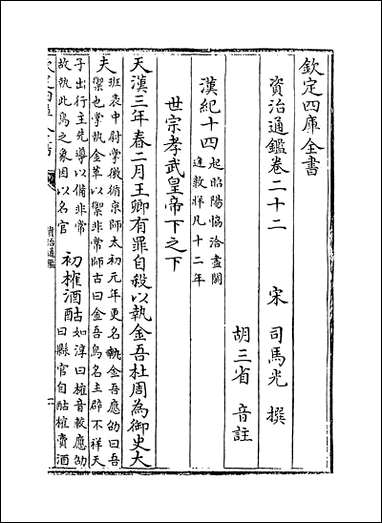 欽定四庫全書
資治通鑑卷二十二
宋 司馬光 撰
胡三省 音註
漢紀十四起昭陽協洽盡閼
逢敦牂凡十二年
世宗孝武皇帝下之下
天漢三年春二月王卿有罪自殺以執金吾杜周為御史大
夫班表中尉掌徼循京師太初元年更名執金吾應劭曰吾
禦也掌執金革以禦非常師古曰金吾鳥名主辟不祥天
子出行主先導以備非常
故執此鳥之象因以名官
初榷酒酤如淳曰榷音較應劭
曰縣官自酤榷賣酒
資治通鑑